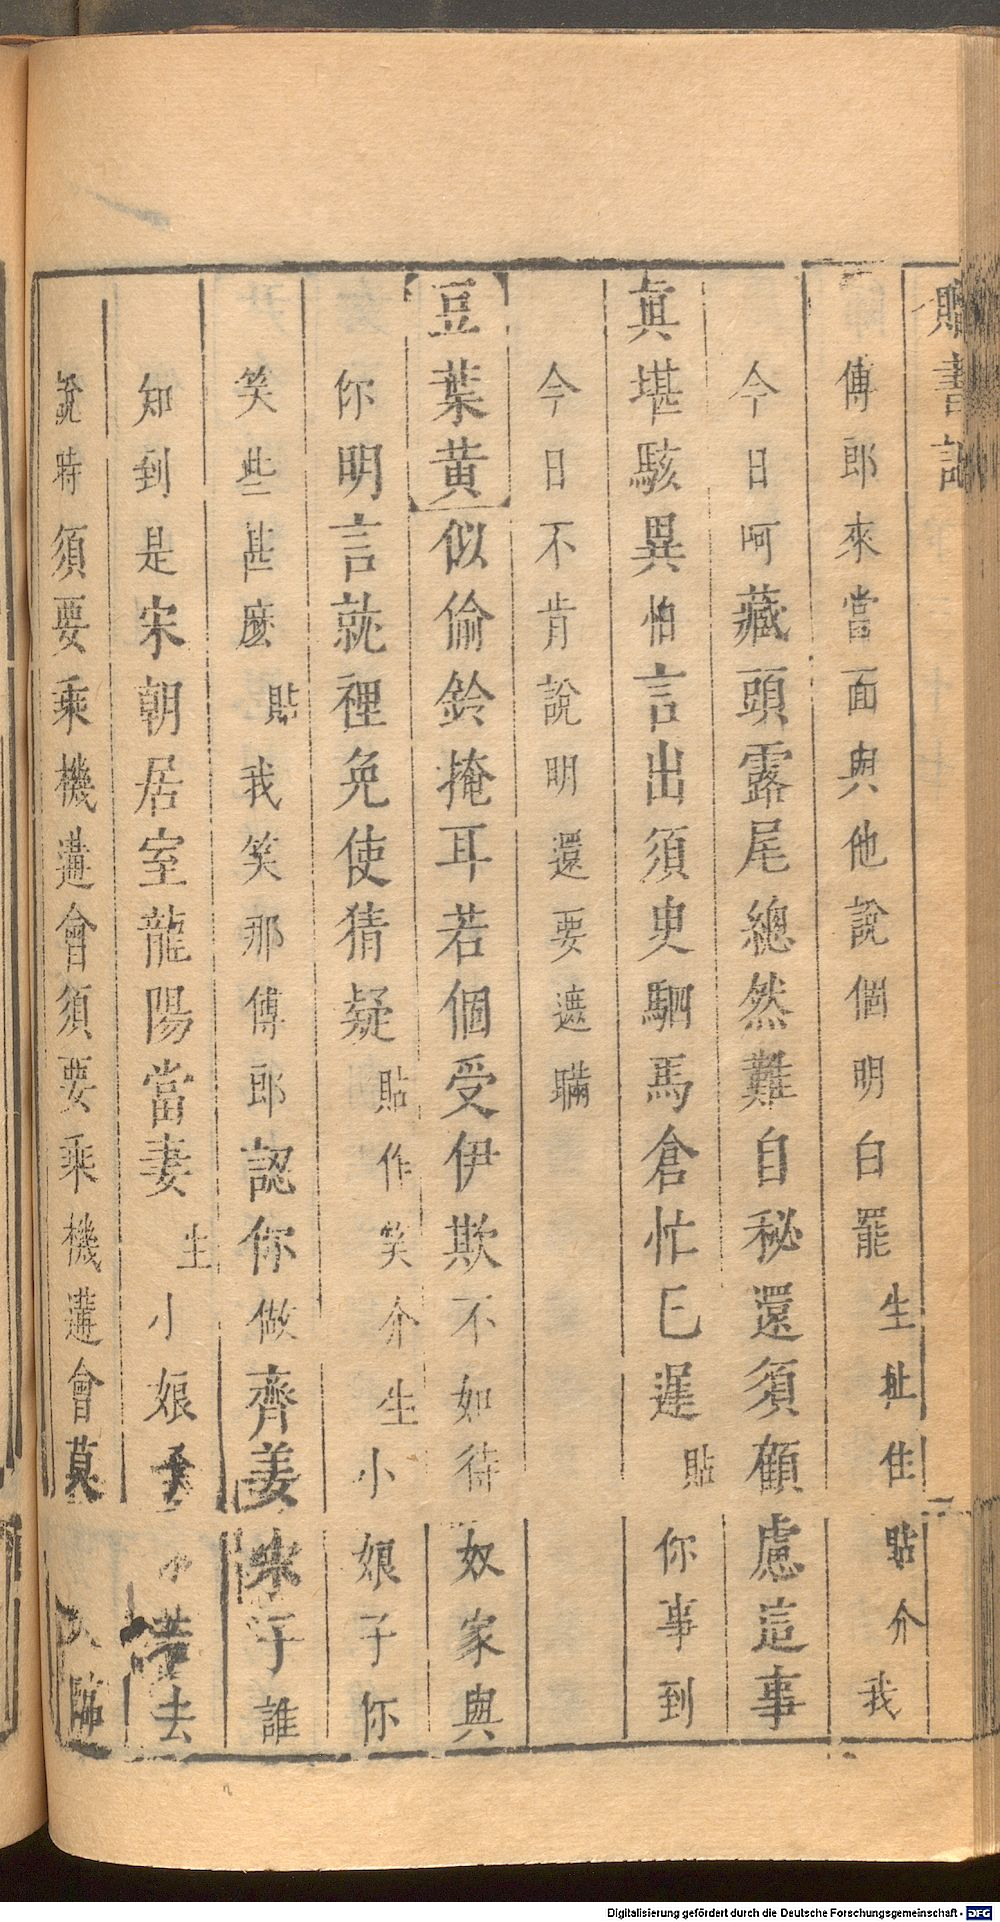 贈書記
傅郎來當面與他說個明白罷生扯住貼介我
今日呵藏頭露尾總然難自秘還須顧慮這事
真堪駭異怕言出須臾駟馬倉忙已遲貼你事到
今日不肯說明還要遮瞞
豆葉黃似偷鈴掩耳若個受伊欺不如待奴家與
你明言就裡免使猜疑貼作笑介生小娘子你
笑些甚麼貼我笑那傅郎認你做齊姜宋子誰
知到是宋朝居室龍陽當妻生小娘子若去
說時須要乘機遘會須要乘機遘會莫臨
Digitalisierung gefördert durch die Deutsche Forschungsgemeinschaft - DFG